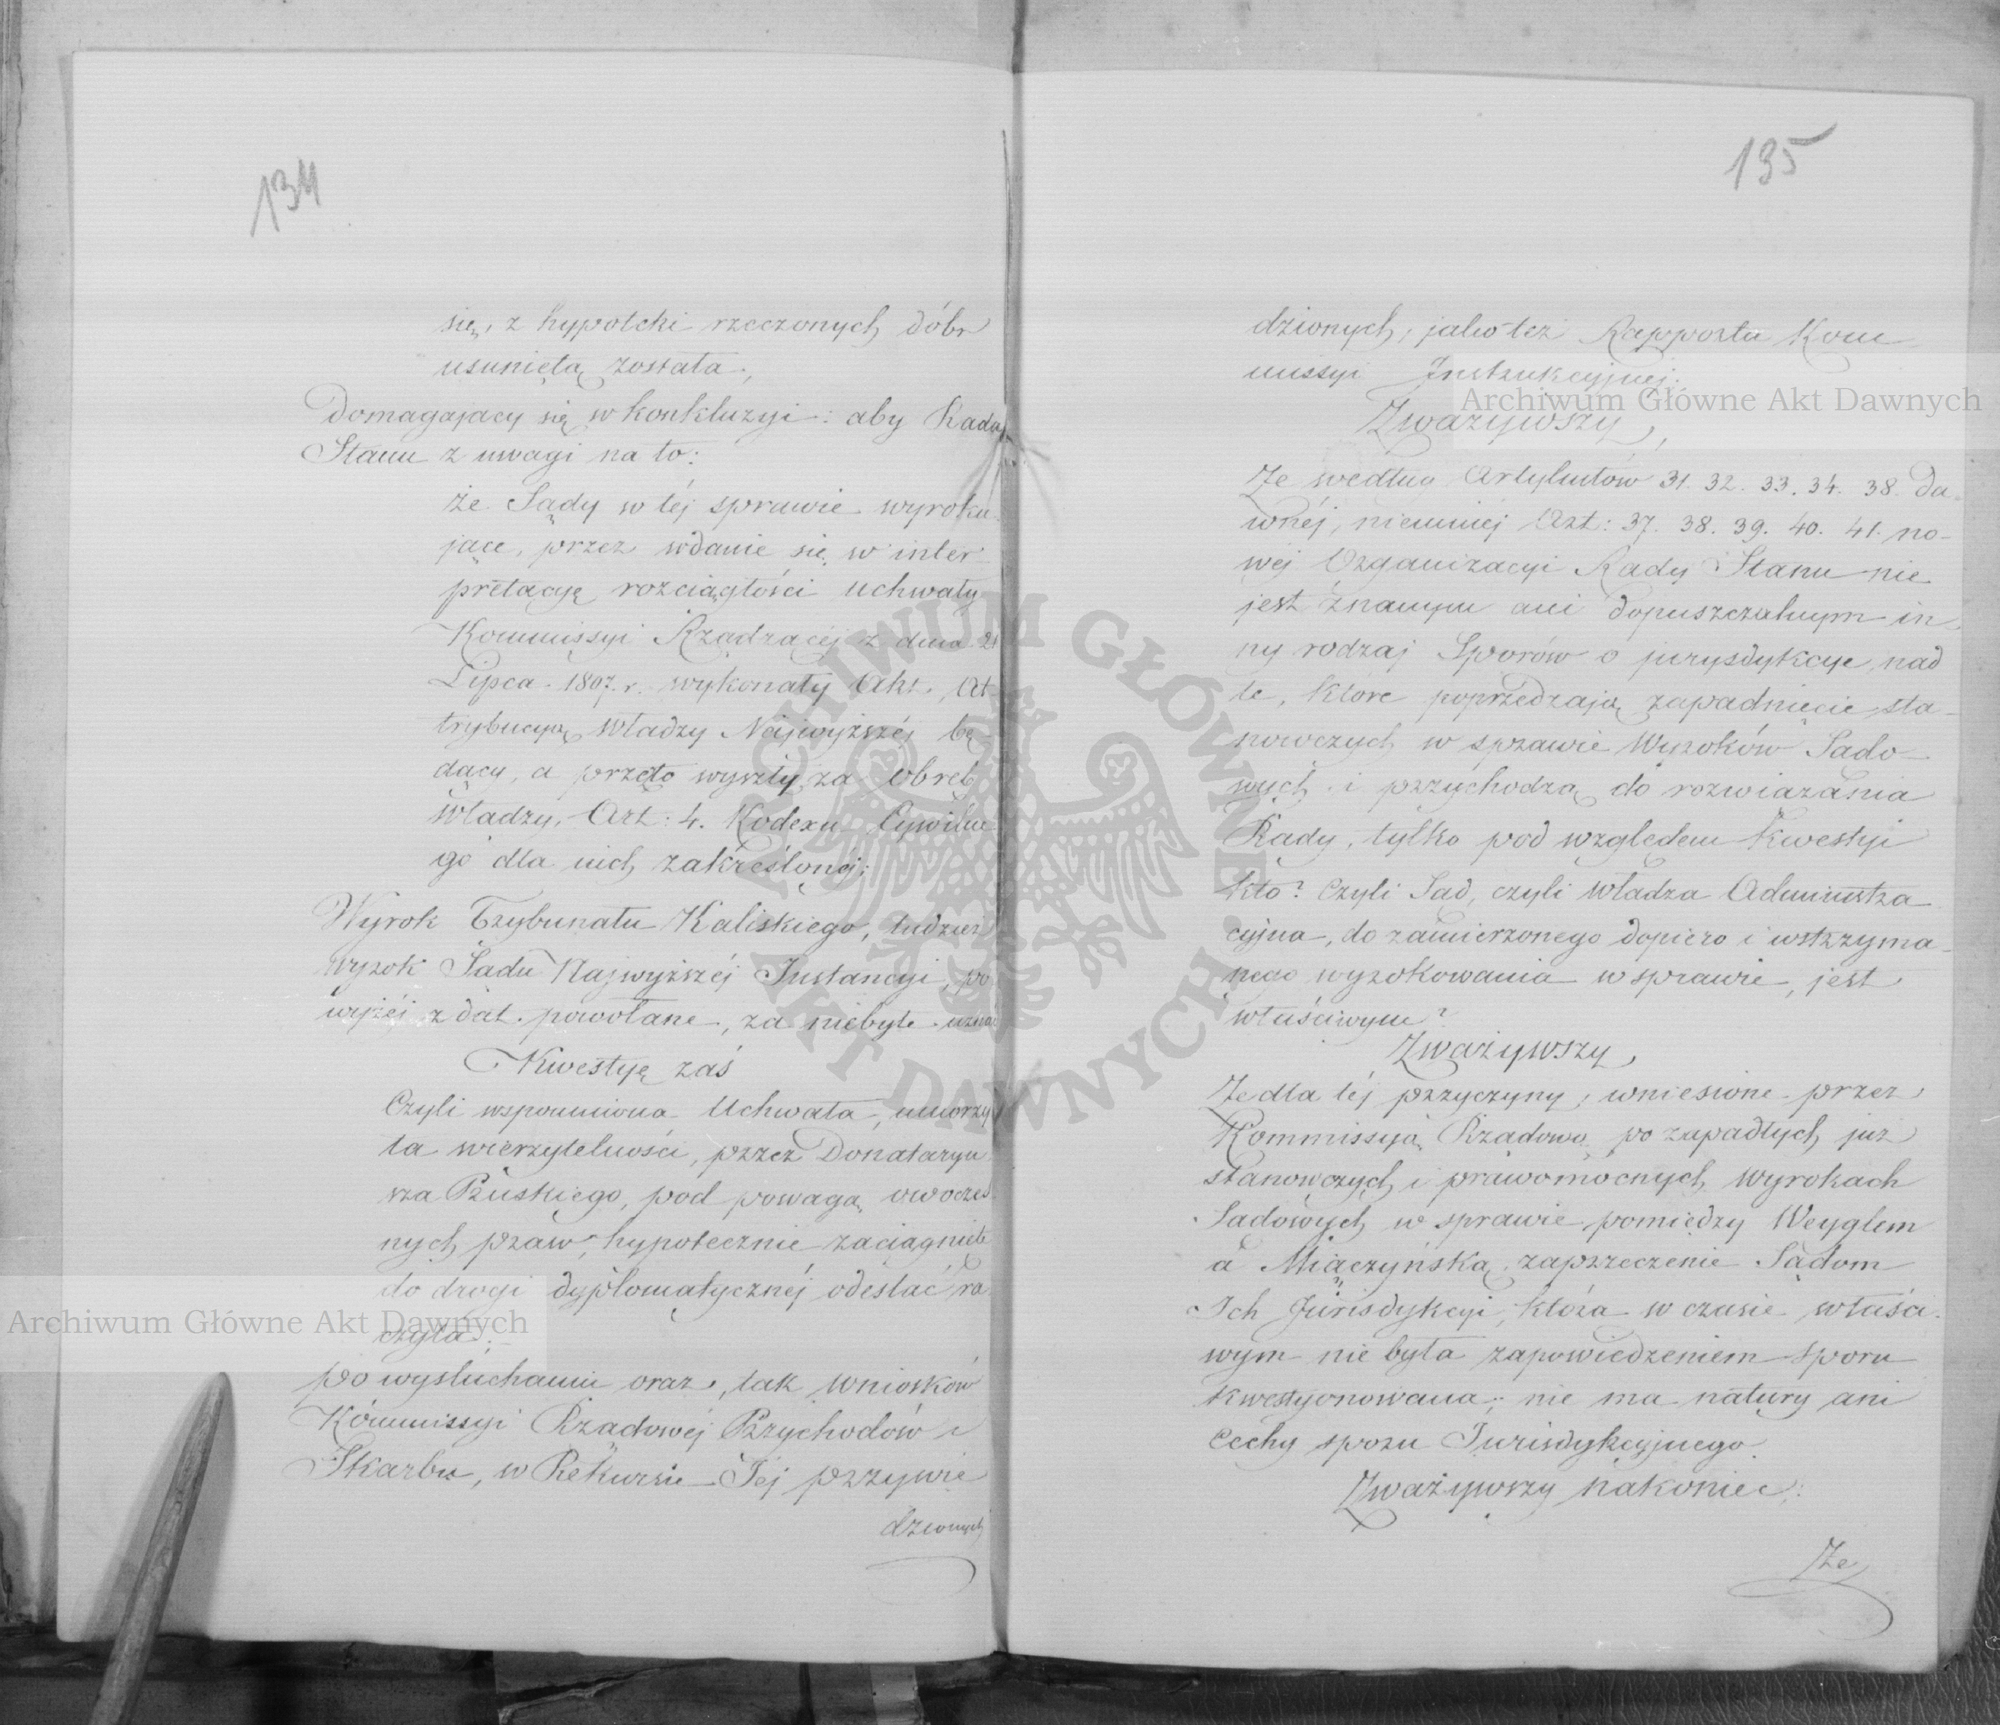 134
się, z hypoteki rzeczonych dóbr
usuniętą została,
Domagający się w konkluzyi: aby Rada
Stanu z uwagi na to:
że Sądy w téj sprawie wyroku-
jące, przez wdanie się w inter-
pretacyę rozciągłości Uchwały
Kommissyi Rządzącéj z dnia 21
Lipca 1807. r. wykonały Akt, At-
trybucyą Władzy Najwyższéj bę-
dący, a przeto wyszły za obręb
Władzy, Art: 4. Kodexu Cywilne
go dla nich zakreślonéj;
Wyrok Trybunału Kaliskiego, tudzież
wyrok Sądu Najwyższéj Instancyi, po
wyżéj z dat powołane, za niebyłe uznać
Kwestyę zaś
Czyli wspomniona Uchwała, umorzy
ła wierzytelności, przez Donataryu
sza Pruskiego, pod powagą owoczes-
nych praw, hypotecznie zaciągnięte
do drogi dyplomatycznéj odesłać ra
czyła;
po wysłuchaniu oraz, tak wniosków
Kommissyi Rządowéj Przychodów i
Skarbu, w Rekursie Jéj przywie
dzionych
135
dzionych, jako też Rapportu Kom
missyi Instrukcyjnéj.
Zważywszy,
Że według Artykułów 31. 32. 33. 34. 38. Da-
wnéj, niemniéj Art: 37. 38. 39. 40. 41. no-
wéj Organizacyi Rady Stanu nie
jest znanym ani dopuszczalnym in
ny rodzaj Sporów o jurysdykcye, nad
te, które poprzedzają zapadnięcie sta-
nowczych w sprawie Wyroków Sądo-
wych i przychodzą do rozwiązania
Rady, tylko pod względem Kwestyi
kto? Czyli Sąd, czyli Władza Administra
cyjna, do zamierzonego dopiero i wstrzyma-
nego wyrokowania w sprawie, jest
właściwym?
Zważywszy,
Że dla téj przyczyny, wniesione przez
Kommissyą Rządową po zapadłych już
stanowczych i prawomocnych wyrokach
Sądowych w sprawie pomiędzy Weyglem
a Miączyńską, zaprzeczenie Sądom
Ich Jurisdykcyi, która w czasie właści-
wym nie była zapowiedzeniem sporu
Kwestyonowana; nie ma natury ani
Cechy sporu Jurisdykcyjnego.
Zważywszy nakoniec:
Że
Archiwum Główne Akt Dawnych
Archiwum Główne Akt Dawnych
ARCHIWUM GŁÓWNE AKT DAWNYCH